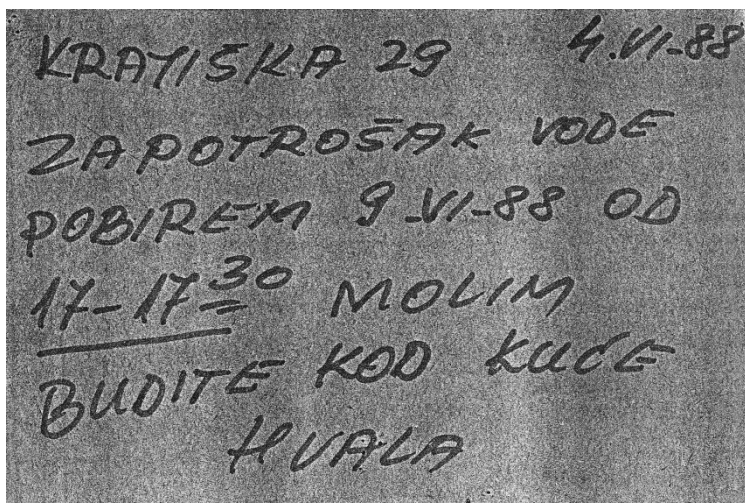 KRAJIŠKA 29 4.VI-88
ZA POTROŠAK VODE
POBIREM 9.VI-88 OD
17-17³⁰ MOLIM
BUDITE KOD KUĆE
HVALA